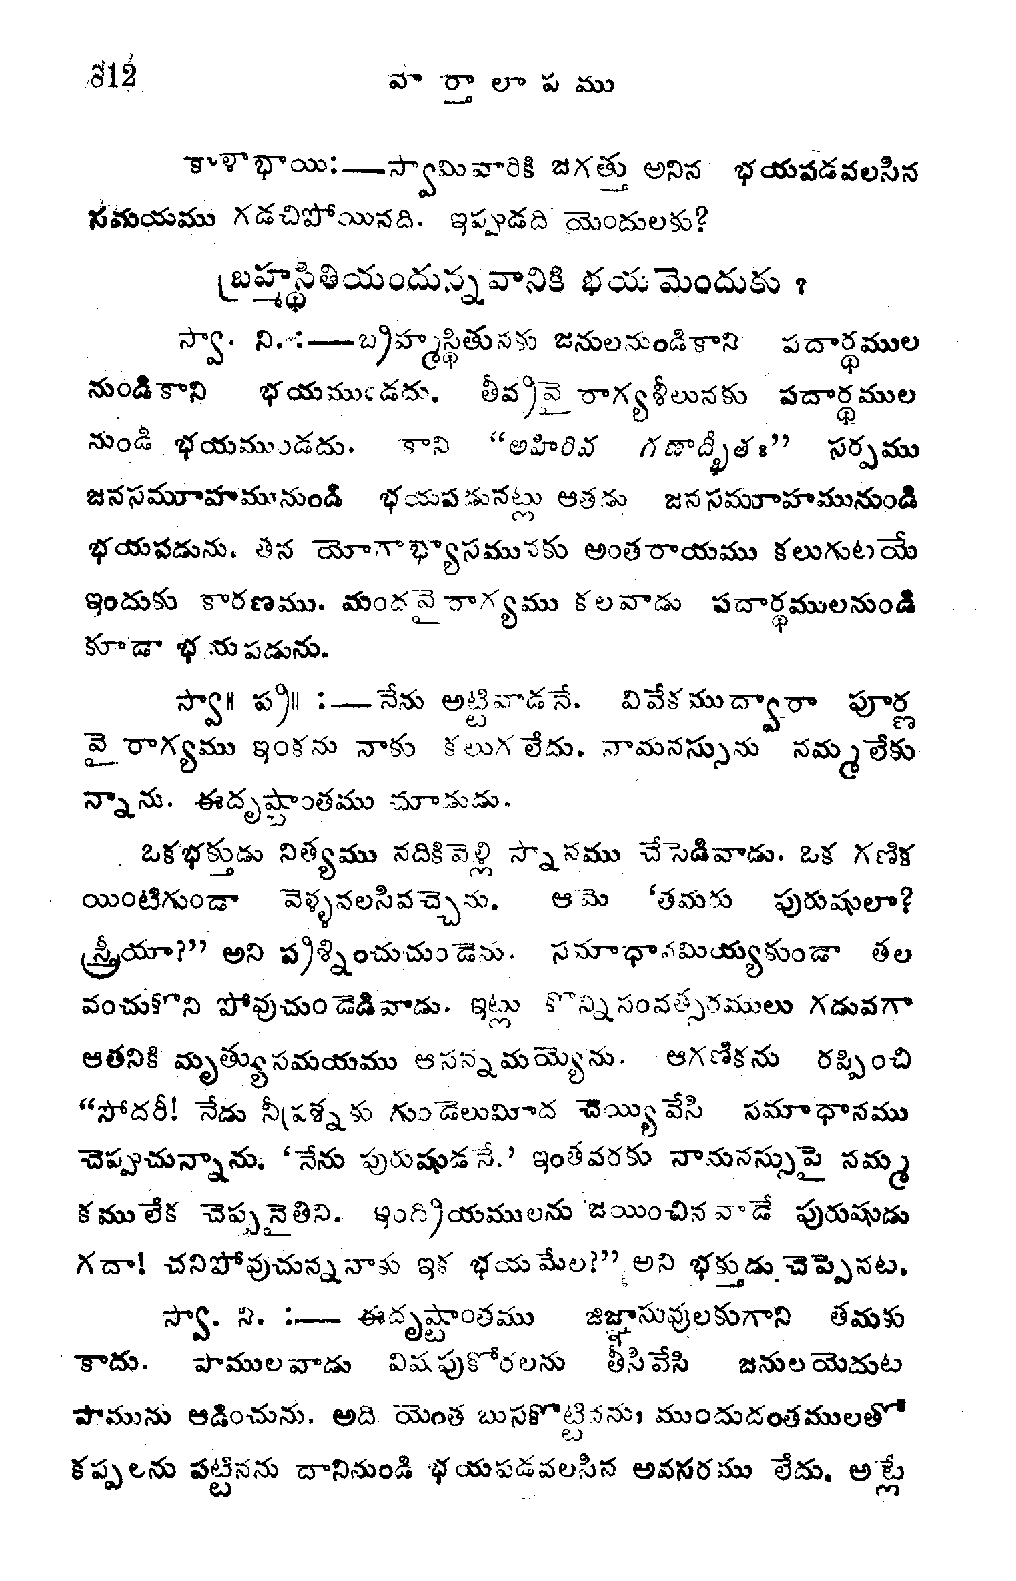 312
వా ర్తా లా ప ము
కాళాభాయి:—స్వామివారికి జగత్తు అనిన భయపడవలసిన
సమయము గడచిపోయినది. ఇప్పుడది యెందులకు?
బ్రహ్మస్థితియందున్నవానికి భయమెందుకు ?
స్వా. ని. :—బ్రహ్మస్థితునకు జనులనుండికాని పదార్థముల
నుండికాని భయముండదు. తీవ్రవైరాగ్యశీలునకు పదార్థముల
నుండి భయముండదు. కాని “అహిరివ గణాద్భీతః” సర్పము
జనసమూహమునుండి భయపడునట్లు ఆతడు జనసమూహమునుండి
భయపడును. తన యోగాభ్యాసమునకు అంతరాయము కలుగుటయే
ఇందుకు కారణము. మందవైరాగ్యము కలవాడు పదార్థములనుండి
కూడా భయపడును.
స్వా॥ ప్ర॥ :—నేను అట్టివాడనే. వివేకముద్వారా పూర్ణ
వైరాగ్యము ఇంకను నాకు కలుగలేదు. నామనస్సును నమ్మలేకు
న్నాను. ఈదృష్టాంతము చూడుడు.
ఒకభక్తుడు నిత్యము నదికివెళ్లి స్నానము చేసెడివాడు. ఒక గణిక
యింటిగుండా వెళ్ళవలసివచ్చెను. ఆమె ‘తమరు పురుషులా?
స్త్రీయా?” అని ప్రశ్నించుచుండెను. సమాధానమియ్యకుండా తల
వంచుకొని పోవుచుండెడివాడు. ఇట్లు కొన్నిసంవత్సరములు గడువగా
ఆతనికి మృత్యుసమయము ఆసన్నమయ్యెను. ఆగణికను రప్పించి
“సోదరీ! నేడు నీప్రశ్నకు గుండెలుమీద చెయ్యివేసి సమాధానము
చెప్పుచున్నాను. ‘నేను పురుషుడనే.’ ఇంతవరకు నామనస్సుపై నమ్మ
కములేక చెప్పనైతిని. ఇంద్రియములను జయించినవాడే పురుషుడు
గదా! చనిపోవుచున్ననాకు ఇక భయమేల?” అని భక్తుడు చెప్పెనట.
స్వా. ని. :— ఈదృష్టాంతము జిజ్ఞాసువులకుగాని తమకు
కాదు. పాములవాడు విషపుకోరలను తీసివేసి జనులయెదుట
పామును ఆడించును. అది యెంత బుసకొట్టినను, ముందుదంతములతో
కప్పలను పట్టినను దానినుండి భయపడవలసిన అవసరము లేదు. అట్లే